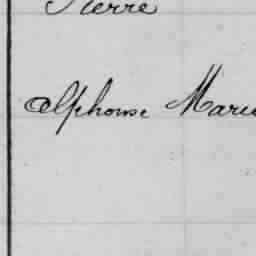 Pierre
Alphonse Marie